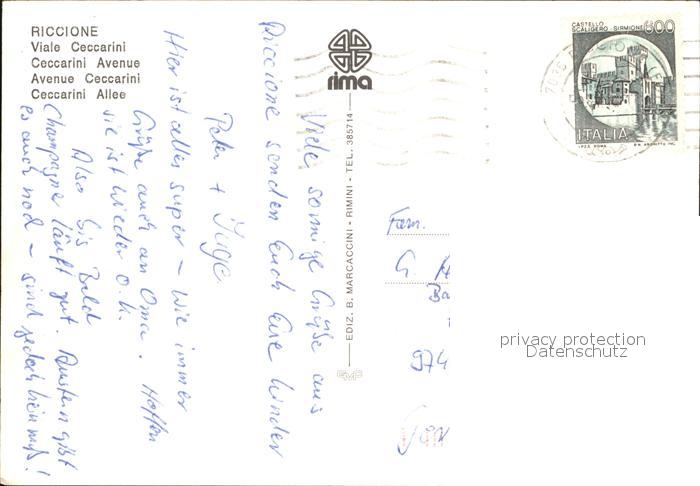 RICCIONE
Viale Ceccarini
Ceccarini Avenue
Avenue Ceccarini
Ceccarini Allee
Viele sonnige Grüße aus
Riccione senden Euch Eure Kinder
Peter + Inge
Hier ist alles super – wie immer
Grüße auch an Oma. Hoffen
sie ist wieder o.k.
Also bis Bald
Champagne läuft gut. Austern gibt
es auch noch – sind jedoch kein muß!
rima
EDIZ. B. MARCACCINI - RIMINI - TEL. 385714
CASTELLO
SCALIGERO - SIRMIONE
600
ITALIA
I.P.Z.S. ROMA
Fam.
G. H
Ba
974
privacy protection
Datenschutz